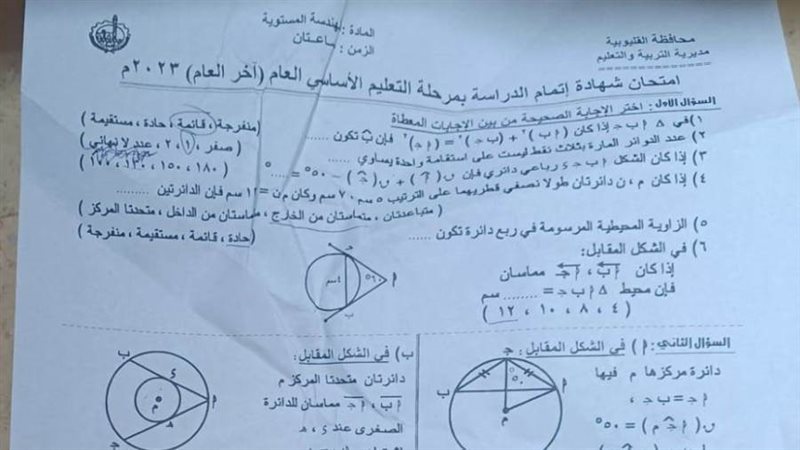 محافظة القليوبية
مديرية التربية والتعليم
المادة : هندسة المستوية
الزمن : ساعتان
امتحان شهادة إتمام الدراسة بمرحلة التعليم الأساسي العام (آخر العام) ٢٠٢٣م
السؤال الأول : اختر الإجابة الصحيحة من بين الإجابات المعطاة
١) في △ م ب جـ إذا كان (م ب)٢ + (ب جـ)٢ = (م جـ)٢ فإن ب تكون ...... (منفرجة ، قائمة ، حادة ، مستقيمة)
٢) عدد الدوائر المارة بثلاث نقط ليست على استقامة واحدة يساوي ...... (صفر ، ١ ، ٢ ، عدد لا نهائي)
٣) إذا كان الشكل م ب جـ ء رباعي دائري فإن ق(م) + ق(جـ) − ٥٠° = ......° (١٨٠ ، ١٥٠ ، ١٣٠ ، ١٧٠)
٤) إذا كان م ، ن دائرتان طولا نصفي قطريهما على الترتيب ٥ سم ، ٧ سم وكان م ن = ١٢ سم فإن الدائرتين ........
(متباعدتان ، متماستان من الخارج ، متماستان من الداخل ، متحدتا المركز)
٥) الزاوية المحيطية المرسومة في ربع دائرة تكون ...... (حادة ، قائمة ، مستقيمة ، منفرجة)
٦) في الشكل المقابل:
إذا كان م ب ، م جـ مماسان
فإن محيط △ م ب جـ = ........ سم
(٤ ، ٨ ، ١٠ ، ١٢)
جـ
م
ب
٦٠°
٤سم
السؤال الثاني : م) في الشكل المقابل:
دائرة مركزها م فيها
م جـ = ب جـ ،
٥٠° =
جـ
م
ب
م
٥٠°
ب) في الشكل المقابل:
دائرتان متحدتا المركز م
م ب ، م جـ مماسان للدائرة
الصغرى عند ء ، هـ
ب
ء
م
م
هـ
جـ